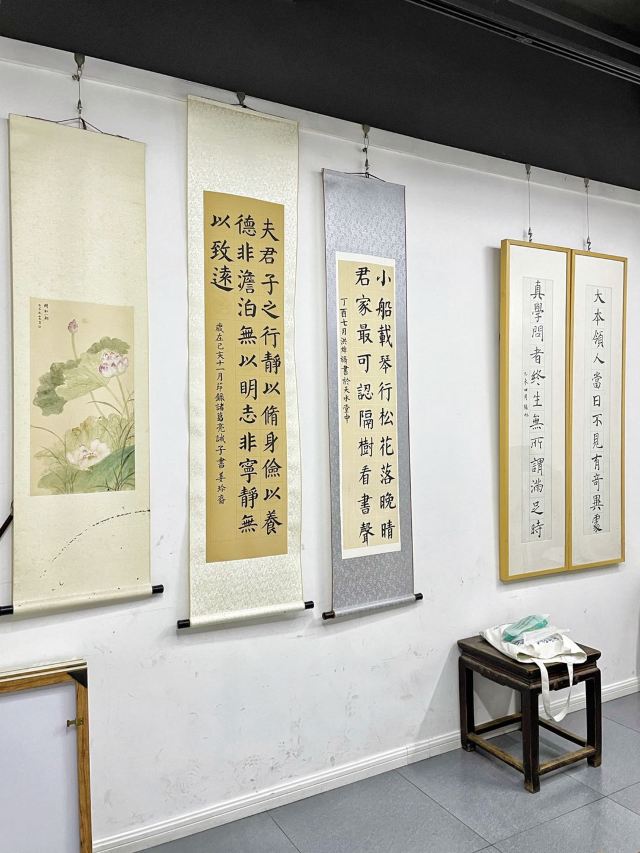 夫君子之行靜以脩身儉以養
德非澹泊無以明志非寧靜無
以致遠
歲在己亥十一月節錄諸葛亮誡子書姜玲
小船載琴行松花落晚晴
君家最可認隔樹看書聲
丁酉七月洪書於天水堂中
大本領人當日不見有奇異處
真學問者終生無所謂滿足時
四月